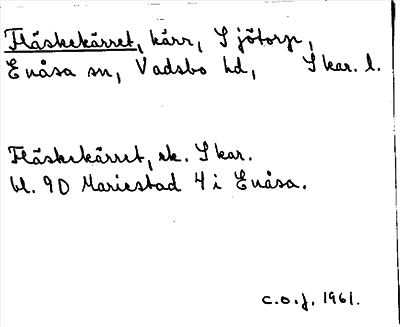 Fläskekärret, kärr, Sjötorp,
Enåsa sn, Vadsbo hd, Skar. l.
Fläskekärret, ek. Skar.
bl. 90 Mariestad 4 i Enåsa.
c.o.f. 1961.